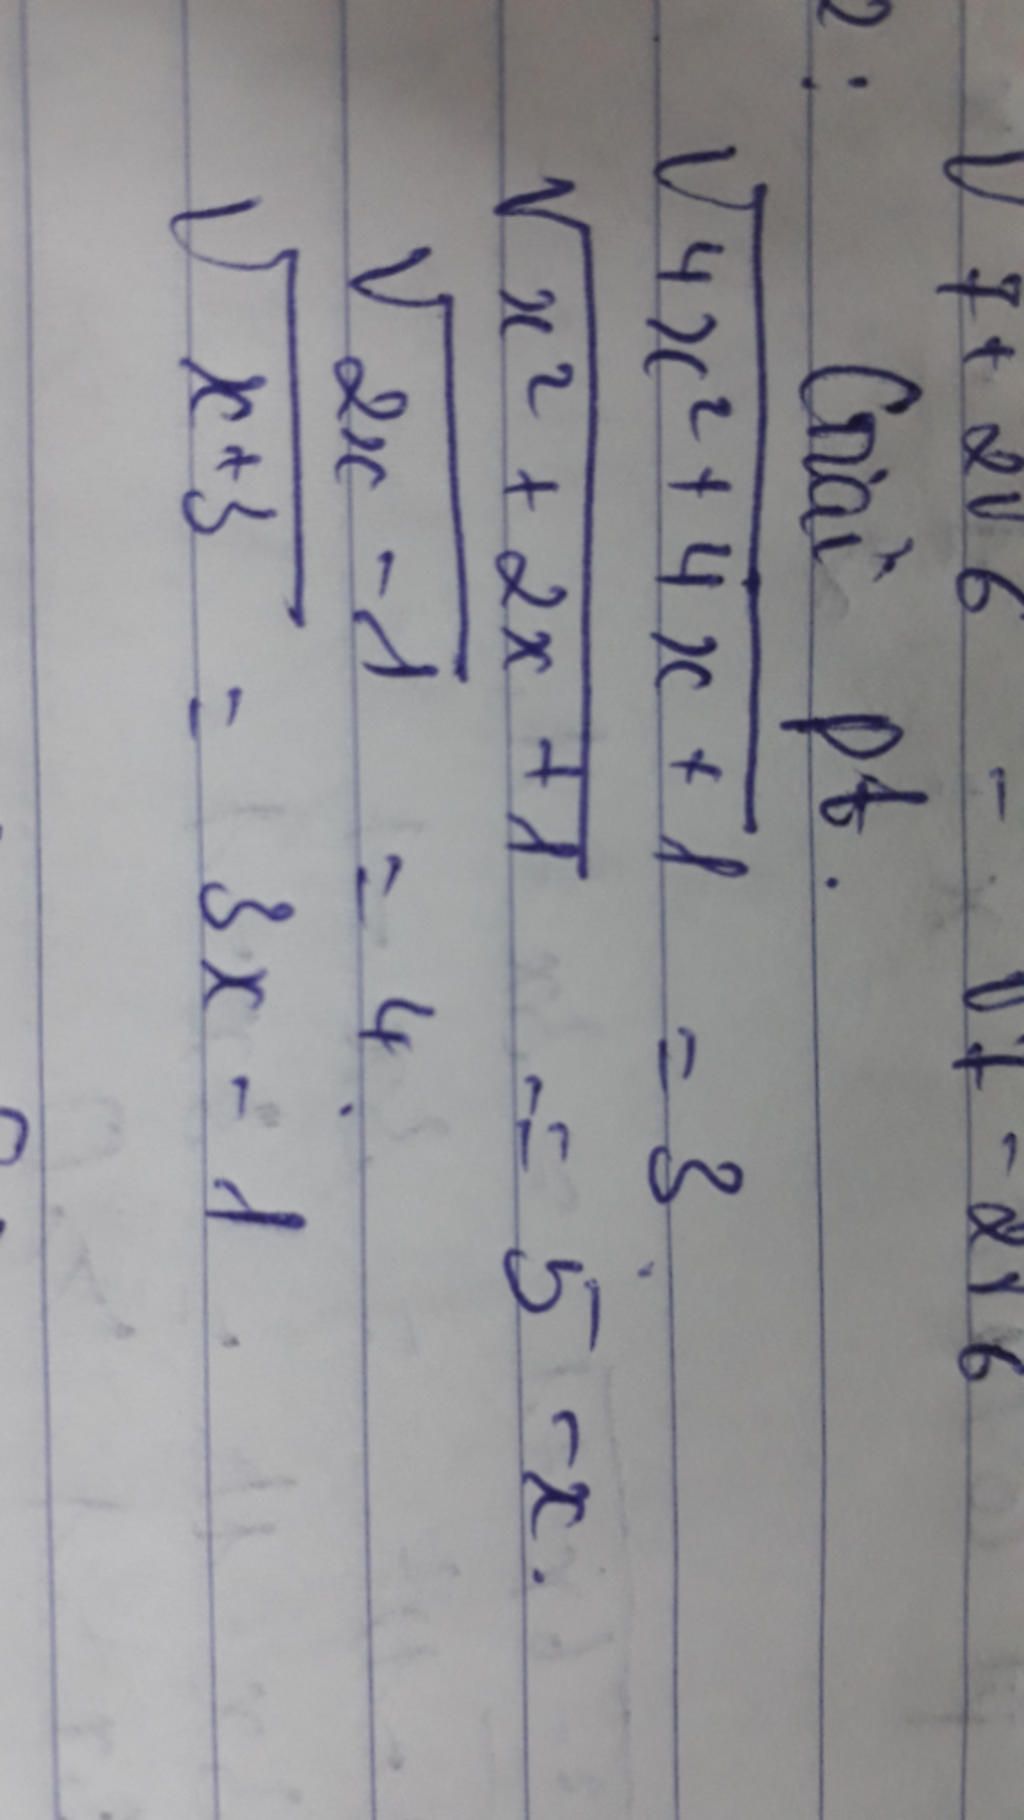 √7+2√6 - √7-2√6
2: Giải pt.
√4x²+4x+1 = 3
√x²+2x+1 = 5-x.
√2x-1 = 4.
√x+3 = 3x-1